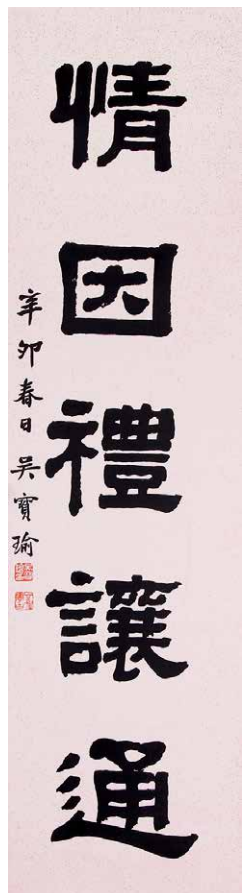 情因禮讓通
辛卯春日吳寶瑜